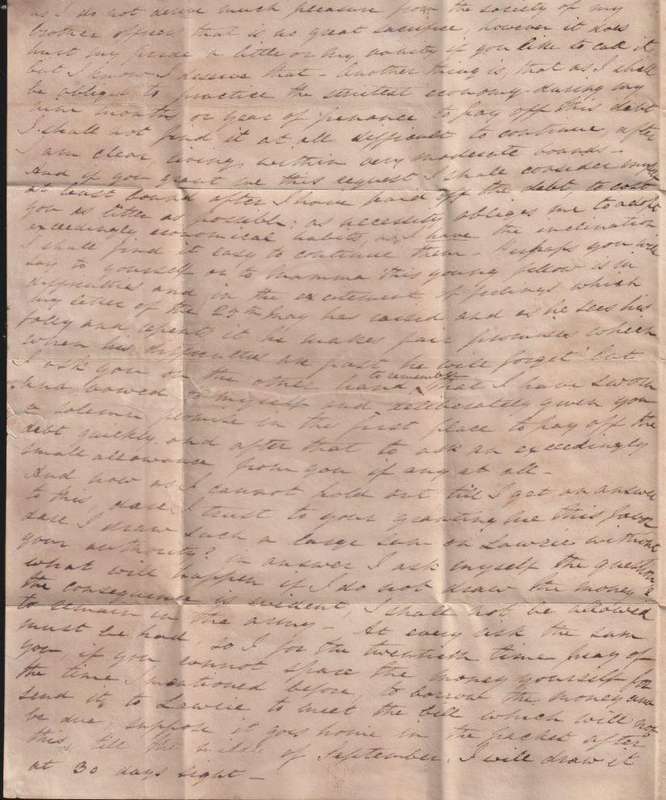 as I do not derive much pleasure from the society of my
brother officers that is no great sacrifice, however it does
hurt my pride a little or my vanity if you like to call it
but I know I deserve that - Another thing is, that as I shall
be obliged to practice the strictest economy during my
nine months or year of penance to pay off this debt
I shall not find it at all difficult to continue, after
I am clear living within very moderate bounds -
And if you grant me this request I shall consider myself
at least bound after I have paid off the debt to cost
you as little as possible: as necessity obliges me to
exceedingly economical habits as I have the inclination
I shall find it easy to continue them - Perhaps you will
say to yourself or to Mamma this young fellow is in
difficulties and in the excitement of feelings which
my letter of the 20th May has raised and as he sees his
folly and repents it he makes fair promises which
when his difficulties are past he will forget but
I ask you on the other hand to remember that I have sworn
and vowed to myself and deliberately given you
a solemn promise in the first place to pay off the
debt quickly and after that to ask an exceedingly
small allowance from you if any at all -
And now as I cannot hold out till I get an answer
to this, I trust to your granting me this favor
dare I draw such a large sum on Lawrie without
your authority? In answer I ask myself the question
what will happen if I do not draw the money &
the consequence is evident, I shall not be allowed
to remain in the army - At every risk the sum
must be had so I for the twentieth time pray of
you, if you cannot spare the money yourself for
the time I mentioned before, to borrow the money and
send it to Lawrie to meet the bill which will not
be due, suppose it goes home in the packet after
this, till the middle of September. I will draw it
at 30 days sight -